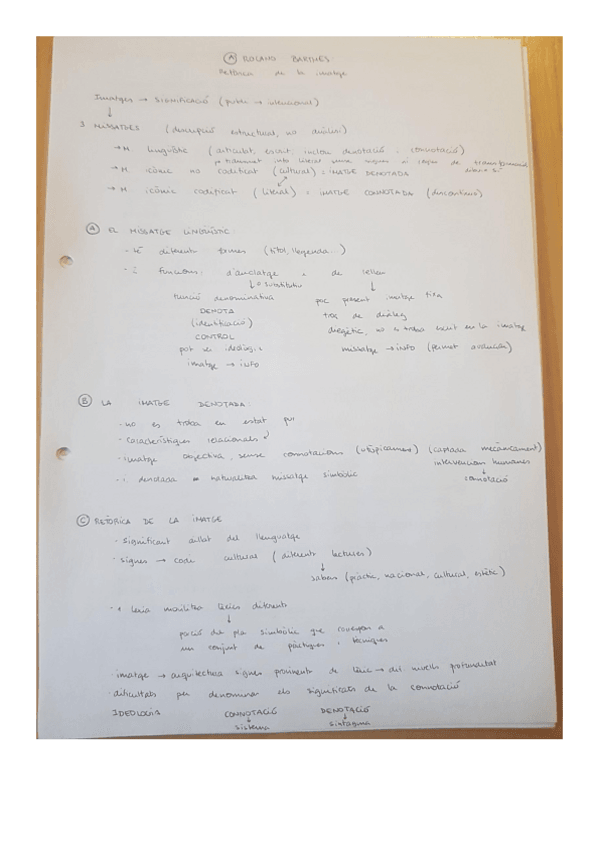 A ROLAND BARTHES:
Retòrica de la imatge
Imatges → SIGNIFICACIÓ (public → intencional)
3 MISSATGES (descripció estructural, no anàlisi)
→ M. lingüístic (articulat, escrit, inclou denotació i connotació)
info literal sense signes ni codi de transformació
→ M. icònic no codificat (cultural) = IMATGE DENOTADA
→ M. icònic codificat (literal) = IMATGE CONNOTADA (discontinua)
A EL MISSATGE LINGÜÍSTIC:
- té diferents formes (títol, llegenda...)
- 2 funcions: d'anclatge i de relleu
↓ = substitutiu
funció denominativa
poc present imatge fixa
DENOTA
troç de diàleg
(identificació)
diegètic, no es troba escrit en la imatge
CONTROL
missatge → info (permet avançar)
pot ser ideològic
imatge → info
B LA IMATGE DENOTADA:
- no es troba en estat pur
- característiques relacionals
- imatge objectiva, sense connotacions (utòpicament) (captada mecànicament)
intervencions humanes
↓
connotació
- i. denotada = naturalitza missatge simbòlic
C RETÒRICA DE LA IMATGE
- significant aïllat del llenguatge
- signes → codi cultural (diferent lectures)
↓
sabers (pràctic, nacional, cultural, estètic)
- 1 lexia mobilitza lèxics diferents
↓
porció del pla simbòlic que correspon a
un conjunt de pràctiques i tècniques
- imatge → arquitectura signes provinent de lèxic → dif nivells profunditat
- dificultats per denominar els significats de la connotació
IDEOLOGIA CONNOTACIÓ DENOTACIÓ
↓ ↓
sistema sintagma